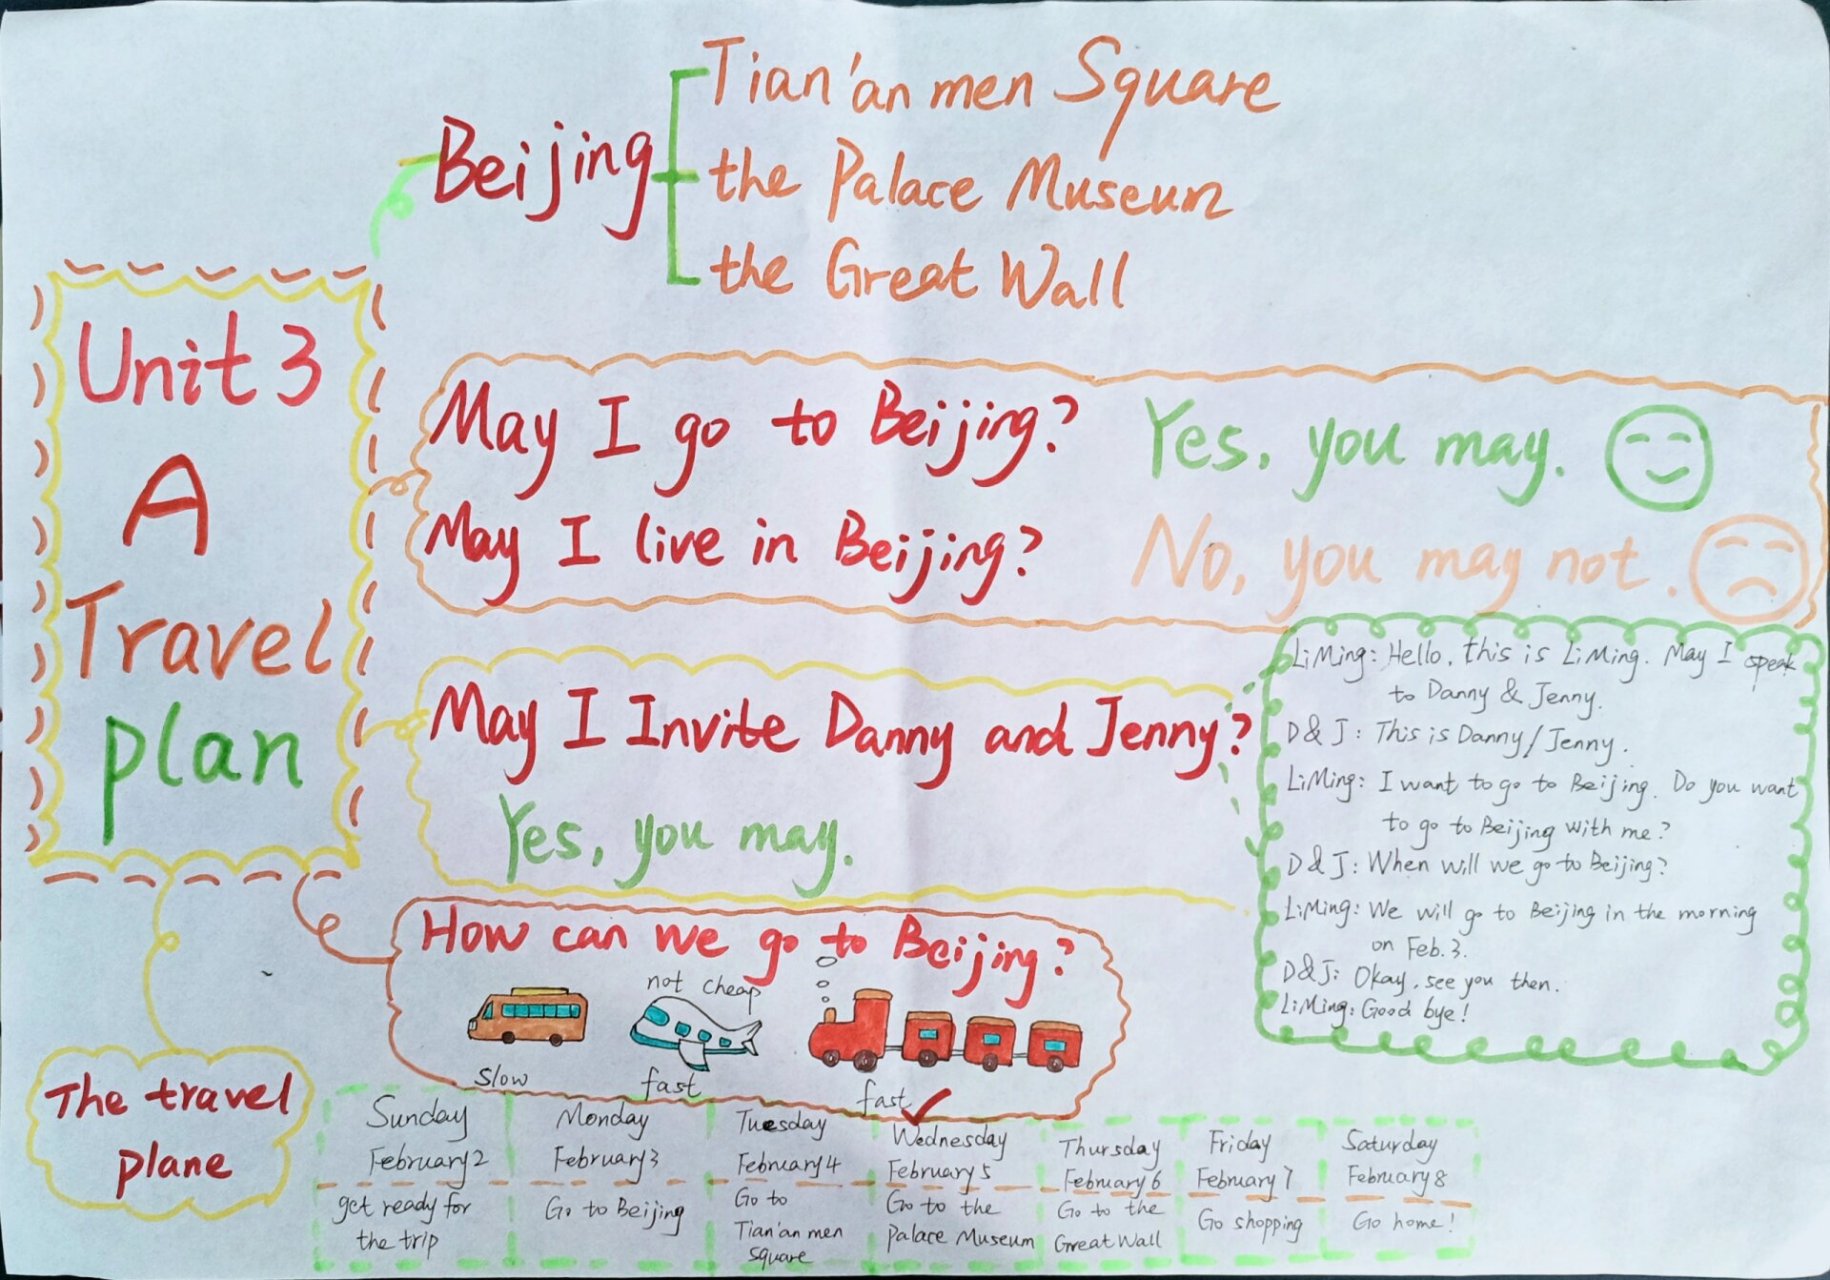 Beijing
Tian'an men Square
the Palace Museum
the Great Wall
Unit 3
A
Travel
plan
May I go to Beijing? Yes, you may.
May I live in Beijing? No, you may not.
May I Invite Danny and Jenny?
Yes, you may.
LiMing: Hello, this is LiMing. May I speak
to Danny & Jenny.
D & J: This is Danny/Jenny.
LiMing: I want to go to Beijing. Do you want
to go to Beijing with me?
D & J: When will we go to Beijing?
LiMing: We will go to Beijing in the morning
on Feb. 3.
D&J: Okay, see you then.
LiMing: Good bye!
How can we go to Beijing?
not cheap
slow
fast
fast
The travel
plane
Sunday
February 2
get ready for
the trip
Monday
February 3
Go to Beijing
Tuesday
February 4
Go to
Tian'an men
Square
Wednesday
February 5
Go to the
Palace Museum
Thursday
February 6
Go to the
Great Wall
Friday
February 7
Go shopping
Saturday
February 8
Go home!